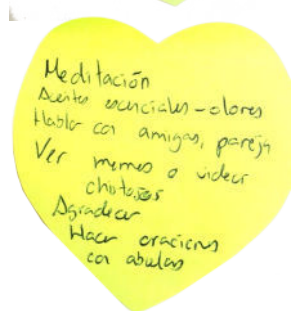 Meditación
Aceites esenciales - olores
Hablar con amigas, pareja
Ver memes o videos
chistosos
Agradecer
Hacer oraciones
con abuelas